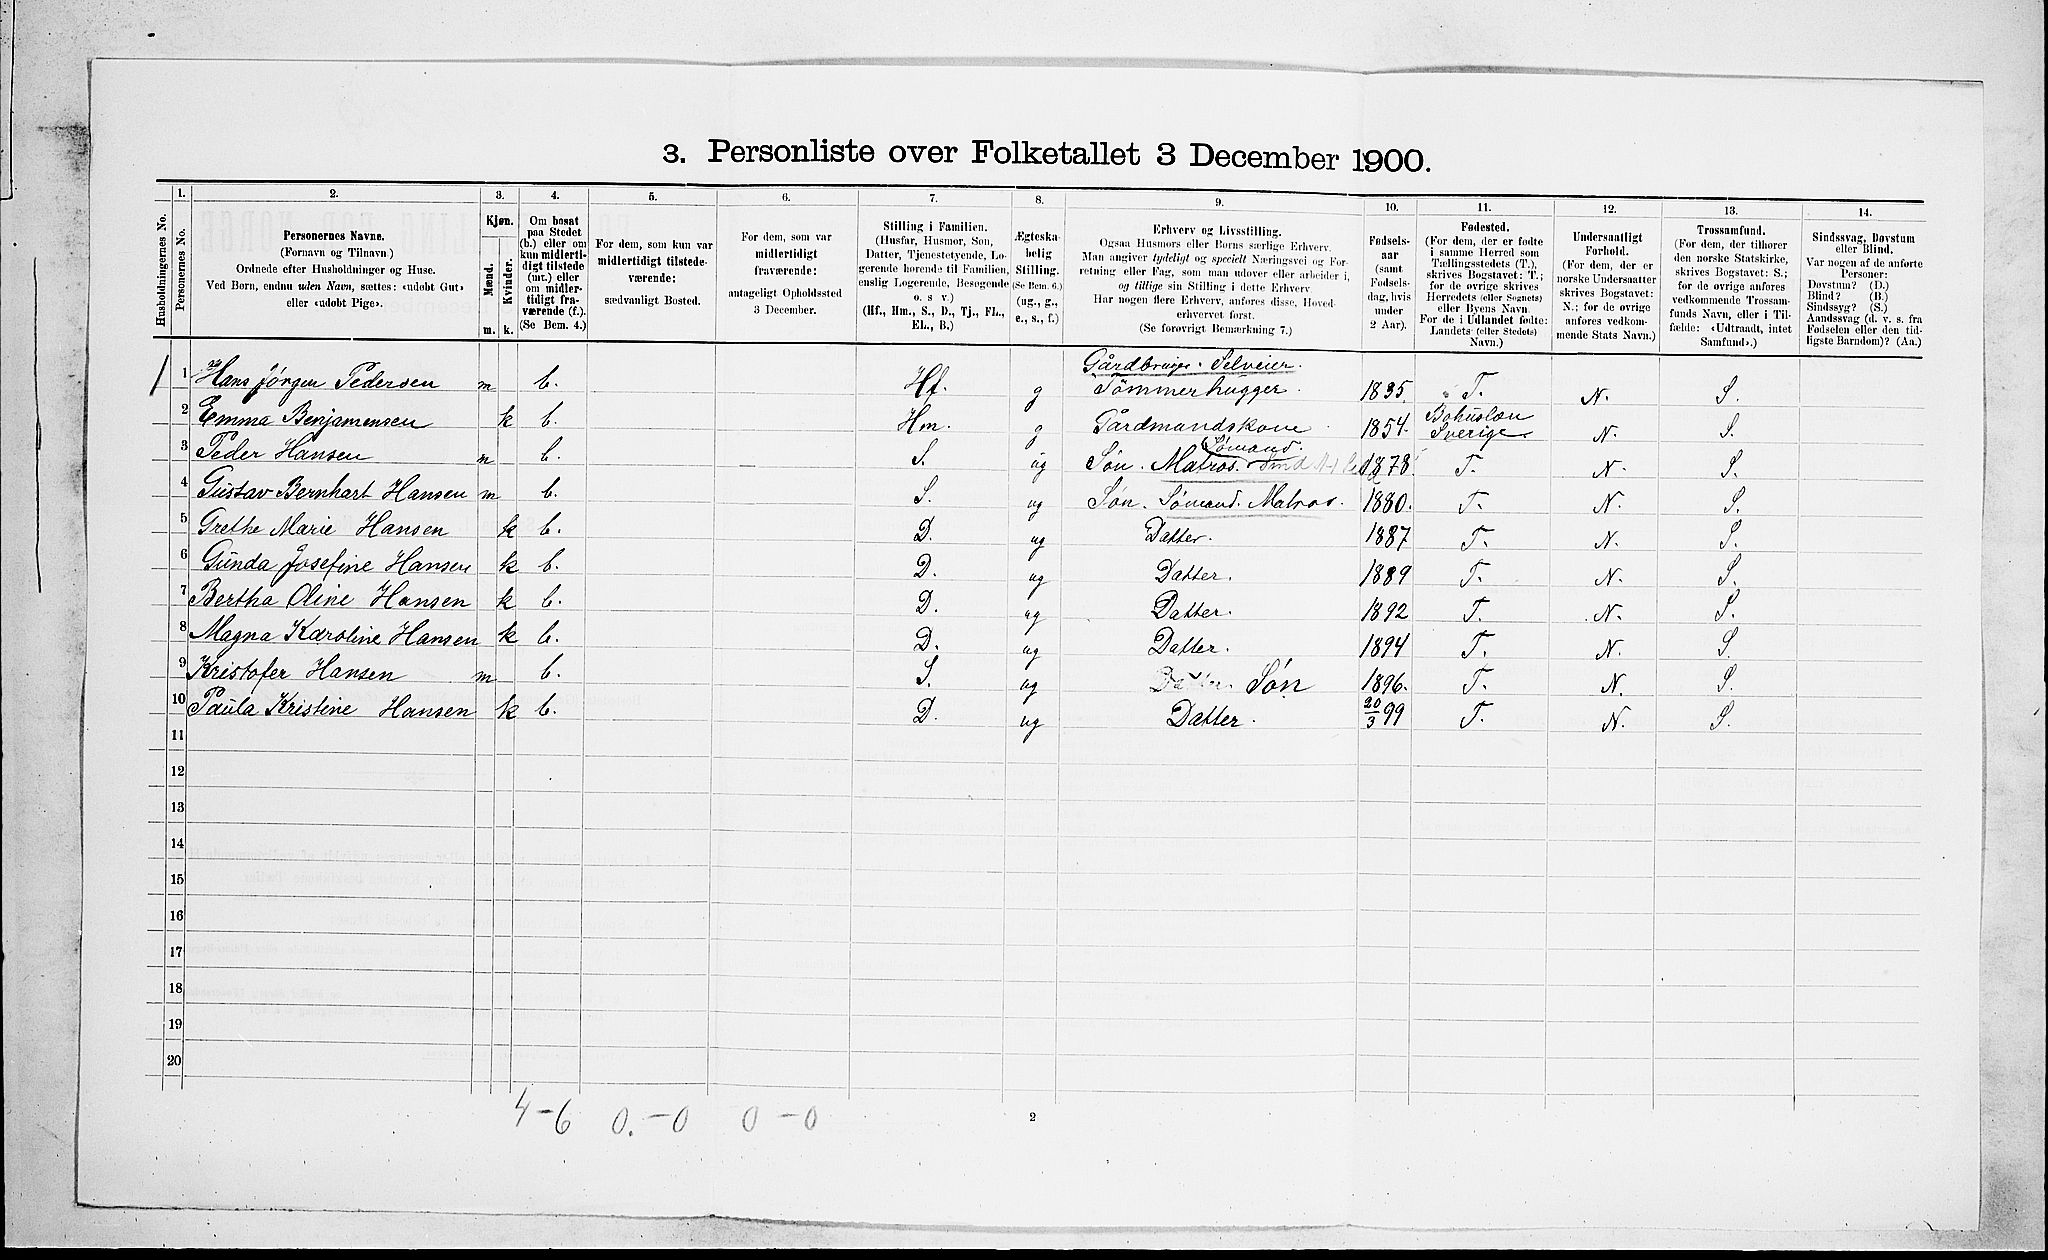 3. Personliste over Folketallet 3 December 1900.
1. 2. 3. 4. 5. 6. 7. 8. 9. 10. 11. 12. 13. 14.
Husholdningernes No.
Personernes No.
Personernes Navne.
(Fornavn og Tilnavn.)
Ordnede efter Husholdninger og Huse.
Ved Børn, endnu uden Navn, sættes: «udobt Gut»
eller «udobt Pige».
Kjøn.
Mænd.
Kvinder.
m. k.
Om bosat
paa Stedet
(b.) eller om
kun midlerti-
digt tilstede
(mt.) eller
om midler-
tidigt fra-
værende (f.).
(Se Bem. 4.)
For dem, som kun var
midlertidigt tilstede-
værende:
sædvanligt Bosted.
For dem, som var
midlertidigt
fraværende:
antageligt Opholdssted
3 December.
Stilling i Familien.
(Husfar, Husmor, Søn,
Datter, Tjenestetyende, Lo-
gerende hørende til Familien,
enslig Logerende, Besøgende
o. s. v.)
(Hf., Hm., S., D., Tj., FL.,
EL., B.)
Ægteska-
belig
Stilling.
(Se Bem. 6.)
(ug., g.,
e., s., f.)
Erhverv og Livsstilling.
Ogsaa Husmors eller Børns særlige Erhverv.
Man angiver tydeligt og specielt Næringsvei og For-
retning eller Fag, som man udover eller arbeider i,
og tillige sin Stilling i dette Erhverv.
Har nogen flere Erhverv, anføres disse, Hoved-
erhvervet først.
(Se forøvrigt Bemærkning 7.)
Fødsels-
aar
(samt
Fødsels-
dag, hvis
under
2 Aar).
Fødested.
(For dem, der er fødte
i samme Herred som
Tællingsstedets (T.),
skrives Bogstavet: T.;
for de øvrige skrives
Herredets (eller Sognets)
eller Byens Navn.
For de i Udlandet fødte:
Landets (eller Stedets)
Navn.)
Undersaatligt
Forhold.
(For dem, der er
norske Undersaatter
skrives Bogstavet:
N.; for de øvrige
anføres vedkom-
mende Stats Navn.)
Trossamfund.
(For dem, der tilhører
den norske Statskirke,
skrives Bogstavet: S.;
for de øvrige anføres
vedkommende Trossam-
funds Navn, eller i Til-
fælde: «Udtraadt, intet
Samfund».)
Sindssvag, Døvstum
eller Blind.
Var nogen af de anførte
Personer:
Døvstum? (D.)
Blind? (B.)
Sindssyg? (S.)
Aandssvag (d. v. s. fra
Fødselen eller den tid-
ligste Barndom)? (Aa.)
1 1 Hans Jørgen Pedersen m b. Hf. g Gårdbruger Selveier. Tømmerhugger. 1835. T. N. S.
2 Emma Benjamensen k b. Hm. g Gårdmandskone. 1854. Bohuslæn Sverige. N. S.
3 Peder Hansen m b. S. ug Søn. Matros. Sømand. 1878 T. N. S.
4 Gustav Bernhart Hansen m b. S. ug Søn. Sømand. Matros. 1880. T. N. S.
5 Grethe Marie Hansen k b. D. ug Datter. 1887 T. N. S.
6 Gunda Josefine Hansen k b. D. ug Datter. 1889 T. N. S.
7 Bertha Oline Hansen k b. D. ug Datter. 1892 T. N. S.
8 Magna Karoline Hansen k b. D. ug Datter. 1894 T. N. S.
9 Kristofer Hansen m b. S. ug Datter. Søn 1896. T. N. S.
10 Paula Kristine Hansen k b. D. ug Datter. 20/3 99 T. N. S.
11
12
13
14
15
16
17
18
19
20
4-6 0.-0 0-0
2